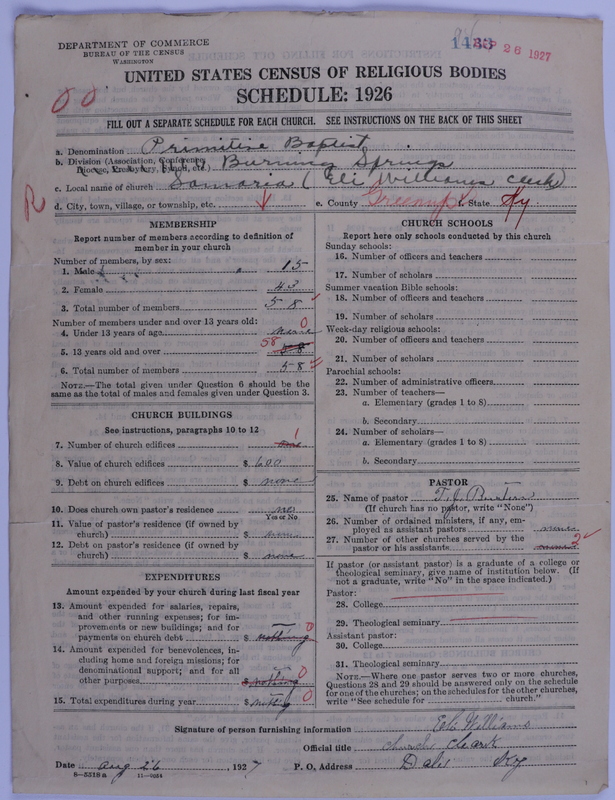 DEPARTMENT OF COMMERCE
BUREAU OF THE CENSUS
WASHINGTON
1433 SEP 26 1927
UNITED STATES CENSUS OF RELIGIOUS BODIES
SCHEDULE: 1926
FILL OUT A SEPARATE SCHEDULE FOR EACH CHURCH. SEE INSTRUCTIONS ON THE BACK OF THIS SHEET
a. Denomination Primitive Baptist
b. Division (Association, Conference, Diocese, Presbytery, Synod, etc.) Burning Springs
c. Local name of church Samaria (Eli Williams clerk)
d. City, town, village, or township, etc.
e. County Greenup f. State Ky
R
MEMBERSHIP
Report number of members according to definition of
member in your church
Number of members, by sex:
1. Male 15
2. Female 43
3. Total number of members 58
Number of members under and over 13 years old:
4. Under 13 years of age none 0
5. 13 years old and over 58 58
6. Total number of members 58
NOTE.—The total given under Question 6 should be
same as the total of males and females given under Question 3.
CHURCH BUILDINGS
See instructions, paragraphs 10 to 12
7. Number of church edifices one 1
8. Value of church edifices $ 600
9. Debt on church edifices $ none
10. Does church own pastor's residence no
Yes or No
11. Value of pastor's residence (if owned by
church) $ none
12. Debt on pastor's residence (if owned by
church) $ none
EXPENDITURES
Amount expended by your church during last fiscal year
13. Amount expended for salaries, repairs,
and other running expenses; for im-
provements or new buildings; and for
payments on church debt $ nothing 0
14. Amount expended for benevolences, in-
cluding home and foreign missions; for
denominational support; and for all
other purposes $ nothing 0
15. Total expenditures during year $ nothing 0
CHURCH SCHOOLS
Report here only schools conducted by this church
Sunday schools:
16. Number of officers and teachers
17. Number of scholars
Summer vacation Bible schools:
18. Number of officers and teachers
19. Number of scholars
Week-day religious schools:
20. Number of officers and teachers
21. Number of scholars
Parochial schools:
22. Number of administrative officers
23. Number of teachers—
a. Elementary (grades 1 to 8)
b. Secondary
24. Number of scholars—
a. Elementary (grades 1 to 8)
b. Secondary
PASTOR
25. Name of pastor T. J. Burton
(If church has no pastor, write "None")
26. Number of ordained ministers, if any, em-
ployed as assistant pastors none
27. Number of other churches served by the
pastor or his assistants 2
If pastor (or assistant pastor) is a graduate of a college or
theological seminary, give name of institution below. (If
not a graduate, write "No" in the space indicated.)
Pastor:
28. College
29. Theological seminary
Assistant pastor:
30. College
31. Theological seminary
NOTE.—Where one pastor serves two or more churches,
Questions 28 and 29 should be answered only on the schedule
for one of the churches; on the schedules for the other churches,
write "See schedule for church."
Signature of person furnishing information Eli Williams
Official title church clerk
Date Aug 26, 1927 P. O. Address Dale Ky
8—5318 a 11—9314